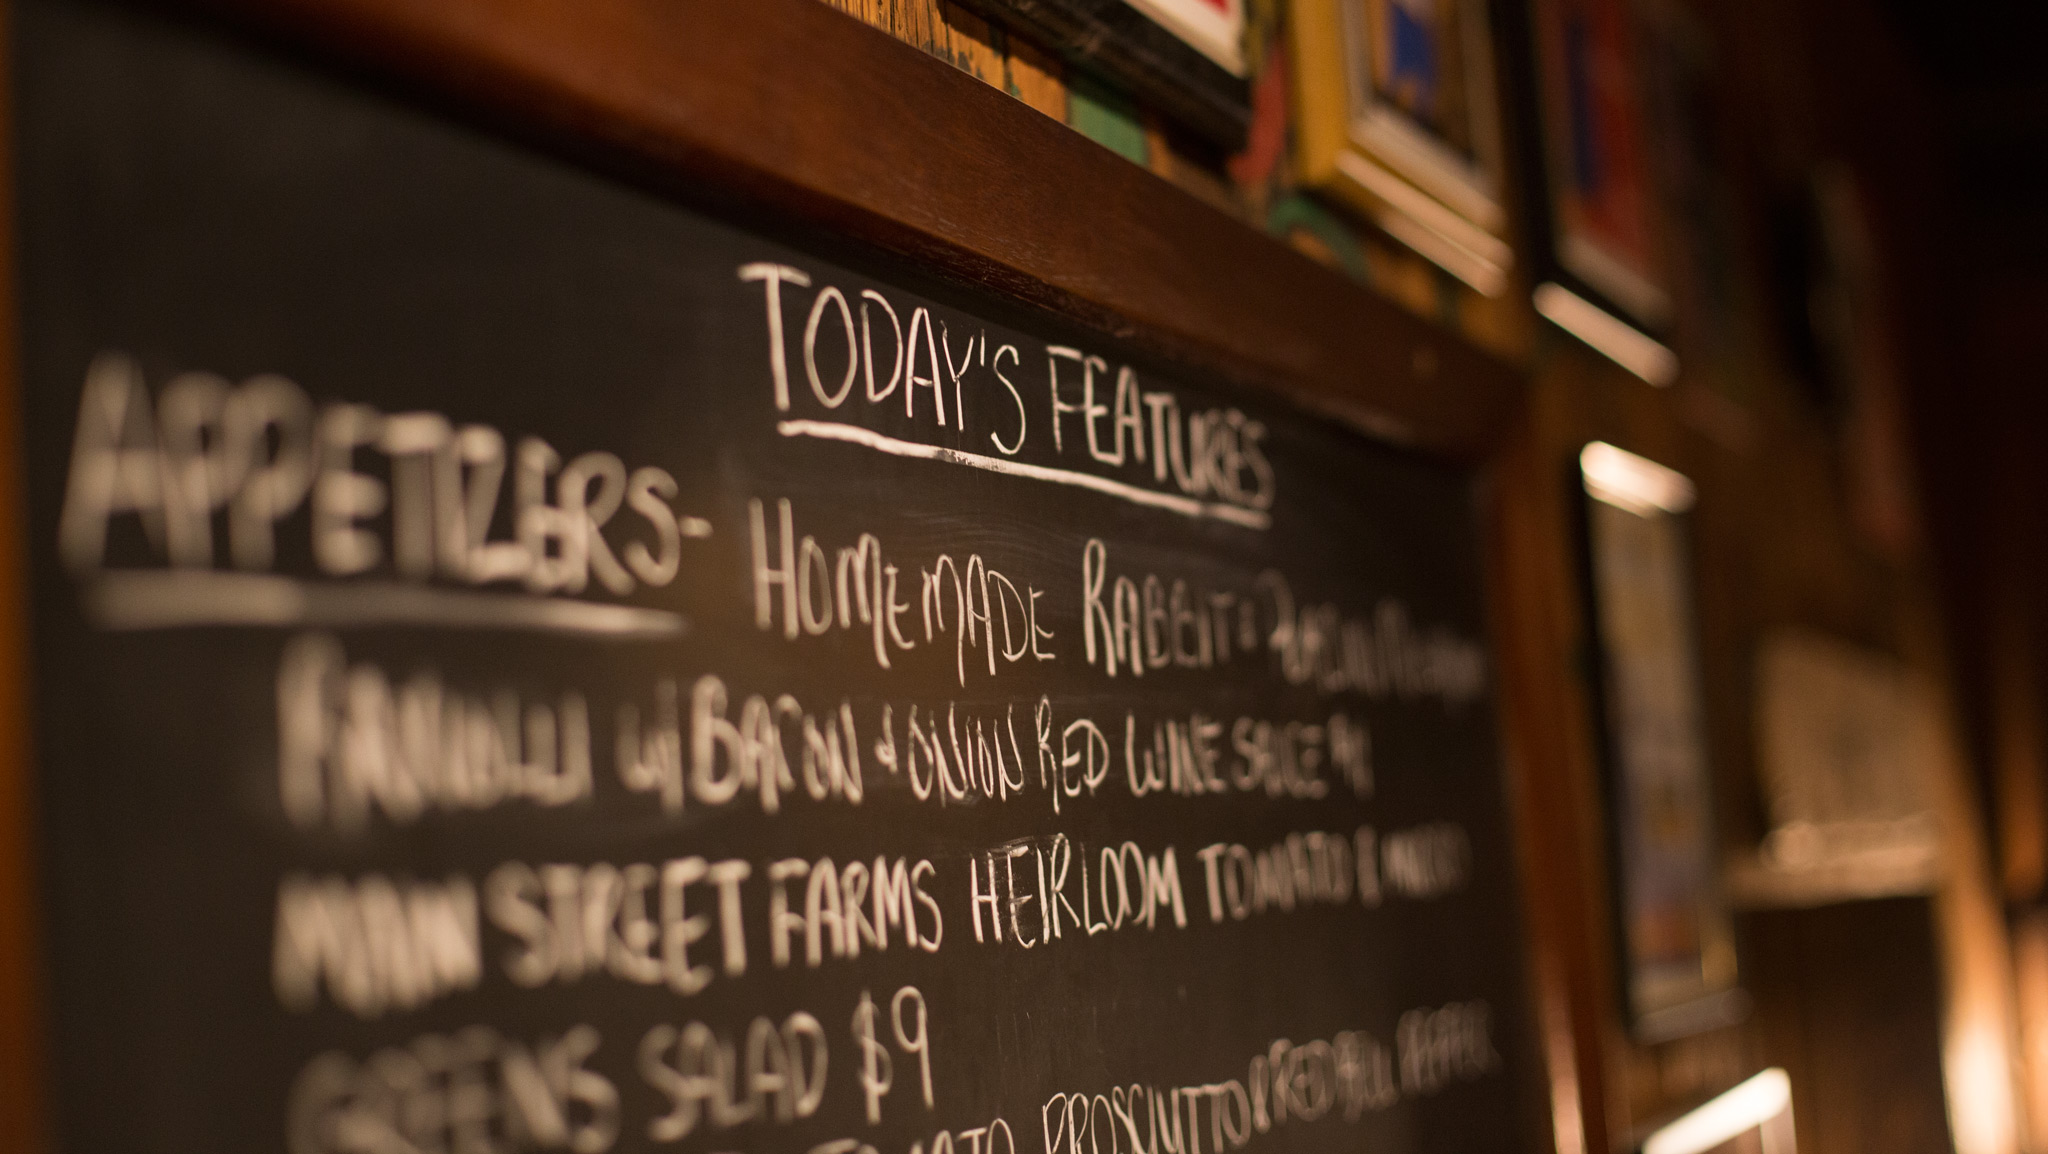 TODAY'S FEATURES
APPETIZERS- HOMEMADE RABBIT &
RAVIOLLI w/ BACON & ONION RED WINE SAUCE
MAIN STREET FARMS HEIRLOOM TOMATO &
GREENS SALAD $9
TOMATO PROSCIUTTO & RED BELL PEPPER